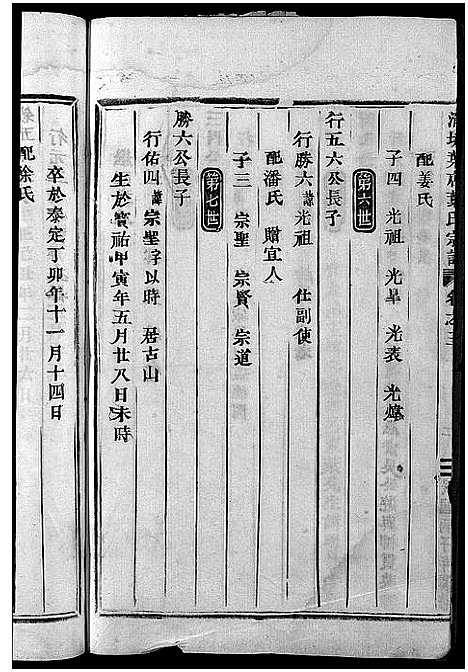 配姜氏
子四 光祖 光旱 光表 光煒
第六世
行五六公長子
行勝六諱光祖 仕副使
配潘氏 贈宜人
子三 宗聖 宗賢 宗道
第七世
勝六公長子
行佑四諱宗聖字以時 居古山
生於寶祐甲寅年五月廿八日未時
卒於泰定丁卯年十一月十四日
配徐氏
行元